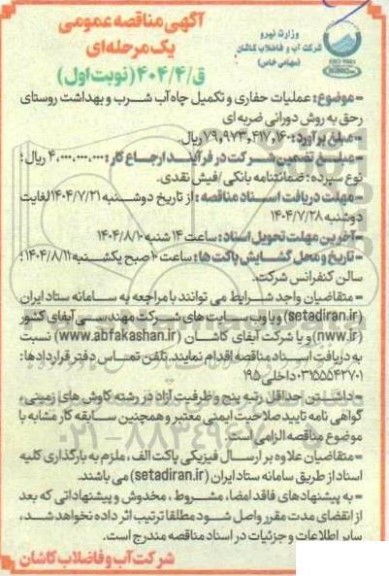 آگهی مناقصه عمومی
یک مرحله‌ای
ق/۴۰۴/۴ (نوبت اول)
وزارت نیرو
شرکت آب و فاضلاب کاشان
(سهامی خاص)
- موضوع: عملیات حفاری و تکمیل چاه آب شرب و بهداشت روستای
رحق به روش دورانی ضربه ای
- مبلغ برآورد: ۷۹,۹۷۳,۴۱۷,۱۶۰ ریال.
- مبلغ تضمین شرکت در فرآیند ارجاع کار: ۴,۰۰۰,۰۰۰,۰۰۰ ریال؛
نوع سپرده: ضمانتنامه بانکی / فیش نقدی.
- مهلت دریافت اسناد مناقصه: از تاریخ دوشنبه ۱۴۰۴/۷/۲۱ لغایت
دوشنبه ۱۴۰۴/۷/۲۸
- آخرین مهلت تحویل اسناد: ساعت ۱۴ شنبه ۱۴۰۴/۸/۱۰
- تاریخ و محل گشایش پاکت ها: ساعت ۱۰ صبح یکشنبه ۱۴۰۴/۸/۱۱؛
سالن کنفرانس شرکت.
- متقاضیان واجد شرایط می توانند با مراجعه به سامانه ستاد ایران
(setadiran.ir) و یا وب سایت های شرکت مهندسی آبفای کشور
(nww.ir) و یا شرکت آبفای کاشان (www.abfakashan.ir) نسبت
به دریافت اسناد مناقصه اقدام نمایند. تلفن تماس دفتر قراردادها:
۰۳۱۵۵۵۴۲۷۰۱ داخلی ۱۹۵
- داشتن حداقل رتبه پنج و ظرفیت آزاد در رشته کاوش های زمینی،
گواهی نامه تایید صلاحیت ایمنی معتبر و همچنین سابقه کار مشابه با
موضوع مناقصه الزامی است.
- متقاضیان علاوه بر ارسال فیزیکی پاکت الف، ملزم به بارگذاری کلیه
اسناد از طریق سامانه ستاد ایران (setadiran.ir) می باشند.
- به پیشنهادهای فاقد امضا، مشروط، مخدوش و پیشنهاداتی که بعد
از انقضای مدت مقرر واصل شود مطلقا ترتیب اثر داده نخواهد شد.
سایر اطلاعات و جزئیات در اسناد مناقصه مندرج است.
شرکت آب و فاضلاب کاشان